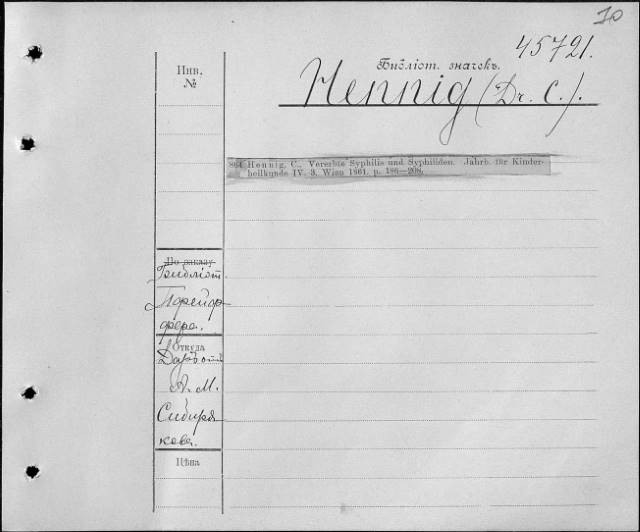 70
45721.
Инв.
№
Библіот. значекъ.
Hennig (Dr. C.).
864 Hennig, C., Vererbte Syphilis und Syphiliden. Jahrb. für Kinder-
heilkunde IV. 3. Wien 1861. p. 186—208.
По заказу
Библіот.
Пфейф-
фера.
Откуда
Даръ отъ
А. М.
Сибиря-
кова.
Цѣна